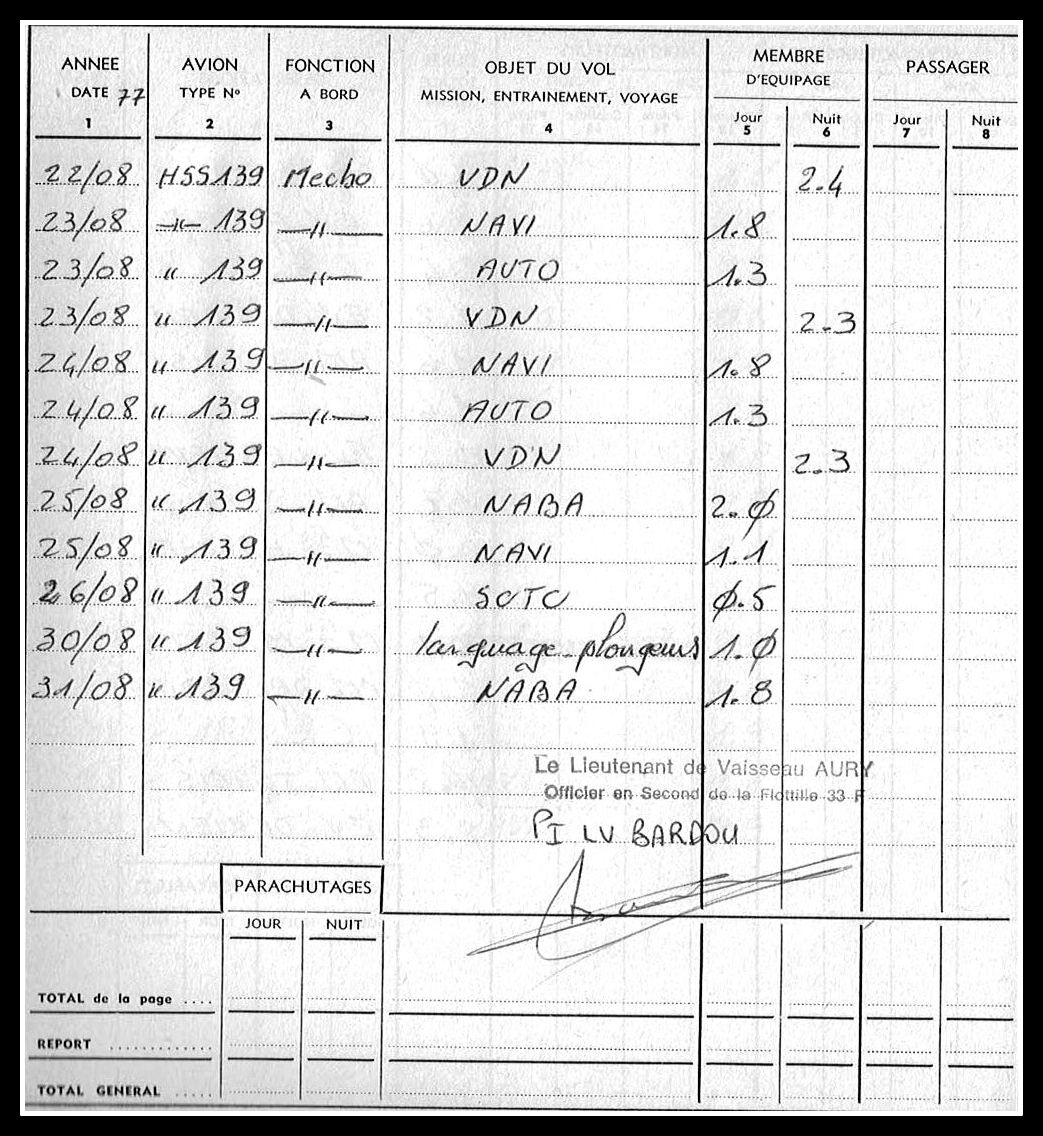 ANNEE AVION FONCTION OBJET DU VOL MEMBRE D'EQUIPAGE PASSAGER
DATE 77 TYPE N° A BORD MISSION, ENTRAINEMENT, VOYAGE Jour Nuit Jour Nuit
1 2 3 4 5 6 7 8
22/08 HSS139 Mecbo VDN 2.4
23/08 —〃— 139 —〃— NAVI 1.8
23/08 〃 139 —〃— AUTO 1.3
23/08 〃 139 —〃— VDN 2.3
24/08 〃 139 —〃— NAVI 1.8
24/08 〃 139 —〃— AUTO 1.3
24/08 〃 139 —〃— VDN 2.3
25/08 〃 139 —〃— NABA 2.Ø
25/08 〃 139 —〃— NAVI 1.1
26/08 〃 139 —〃— SOTO Ø.5
30/08 〃 139 —〃— larguage plongeurs 1.Ø
31/08 〃 139 —〃— NABA 1.8
Le Lieutenant de Vaisseau AURY
Officier en Second de la Flottille 33 F
PI LV BARDOU
PARACHUTAGES
JOUR NUIT
TOTAL de la page ....
REPORT .............
TOTAL GENERAL .....